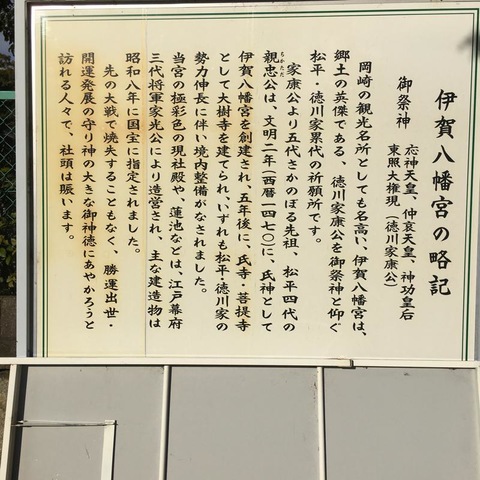 伊賀八幡宮の略記
御祭神　応神天皇、仲哀天皇、神功皇后
東照大権現（徳川家康公）
岡崎の観光名所としても名高い、伊賀八幡宮は、
郷土の英傑である、徳川家康公を御祭神と仰ぐ
松平・徳川家累代の祈願所です。
家康公より五代さかのぼる先祖、松平四代の
親忠公は、文明二年（西暦一四七〇）に、氏神として
ちかただ
伊賀八幡宮を創建され、五年後に、氏寺・菩提寺
として大樹寺を建てられ、いずれも松平・徳川家の
勢力伸長に伴い境内整備がなされました。
当宮の極彩色の現社殿や、蓮池などは、江戸幕府
三代将軍家光公により造営され、主な建造物は
昭和八年に国宝に指定されました。
先の大戦で焼失することもなく、勝運出世・
開運発展の守り神の大きな御神徳にあやかろうと
訪れる人々で、社頭は賑います。